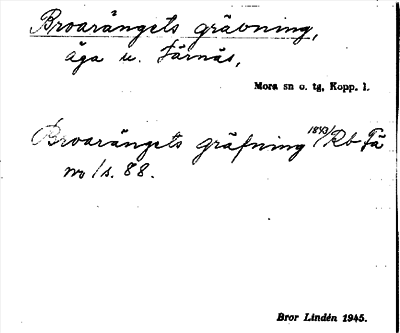 Broarängets grävning,
äga u. Färnäs,
Mora sn o. tg, Kopp. l.
Broarängets gräfning 1843/Rb Fä
no 1 s. 88.
Bror Lindén 1945.